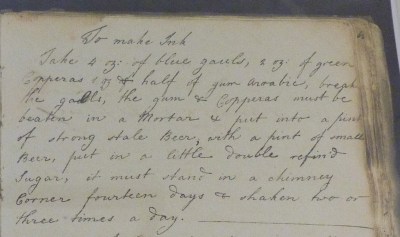 To make Ink
Take 4 oz: of blue gauls, 3 oz: of green
Copperas 1 oz & half of gum Arabic, break
the galls, the gum & Copperas must be
beaten in a Mortar & put into a pint
of strong stale Beer, with a pint of small
Beer, put in a little double refin'd
Sugar, it must stand in a chimney
Corner fourteen days & shaken two or
three times a day.